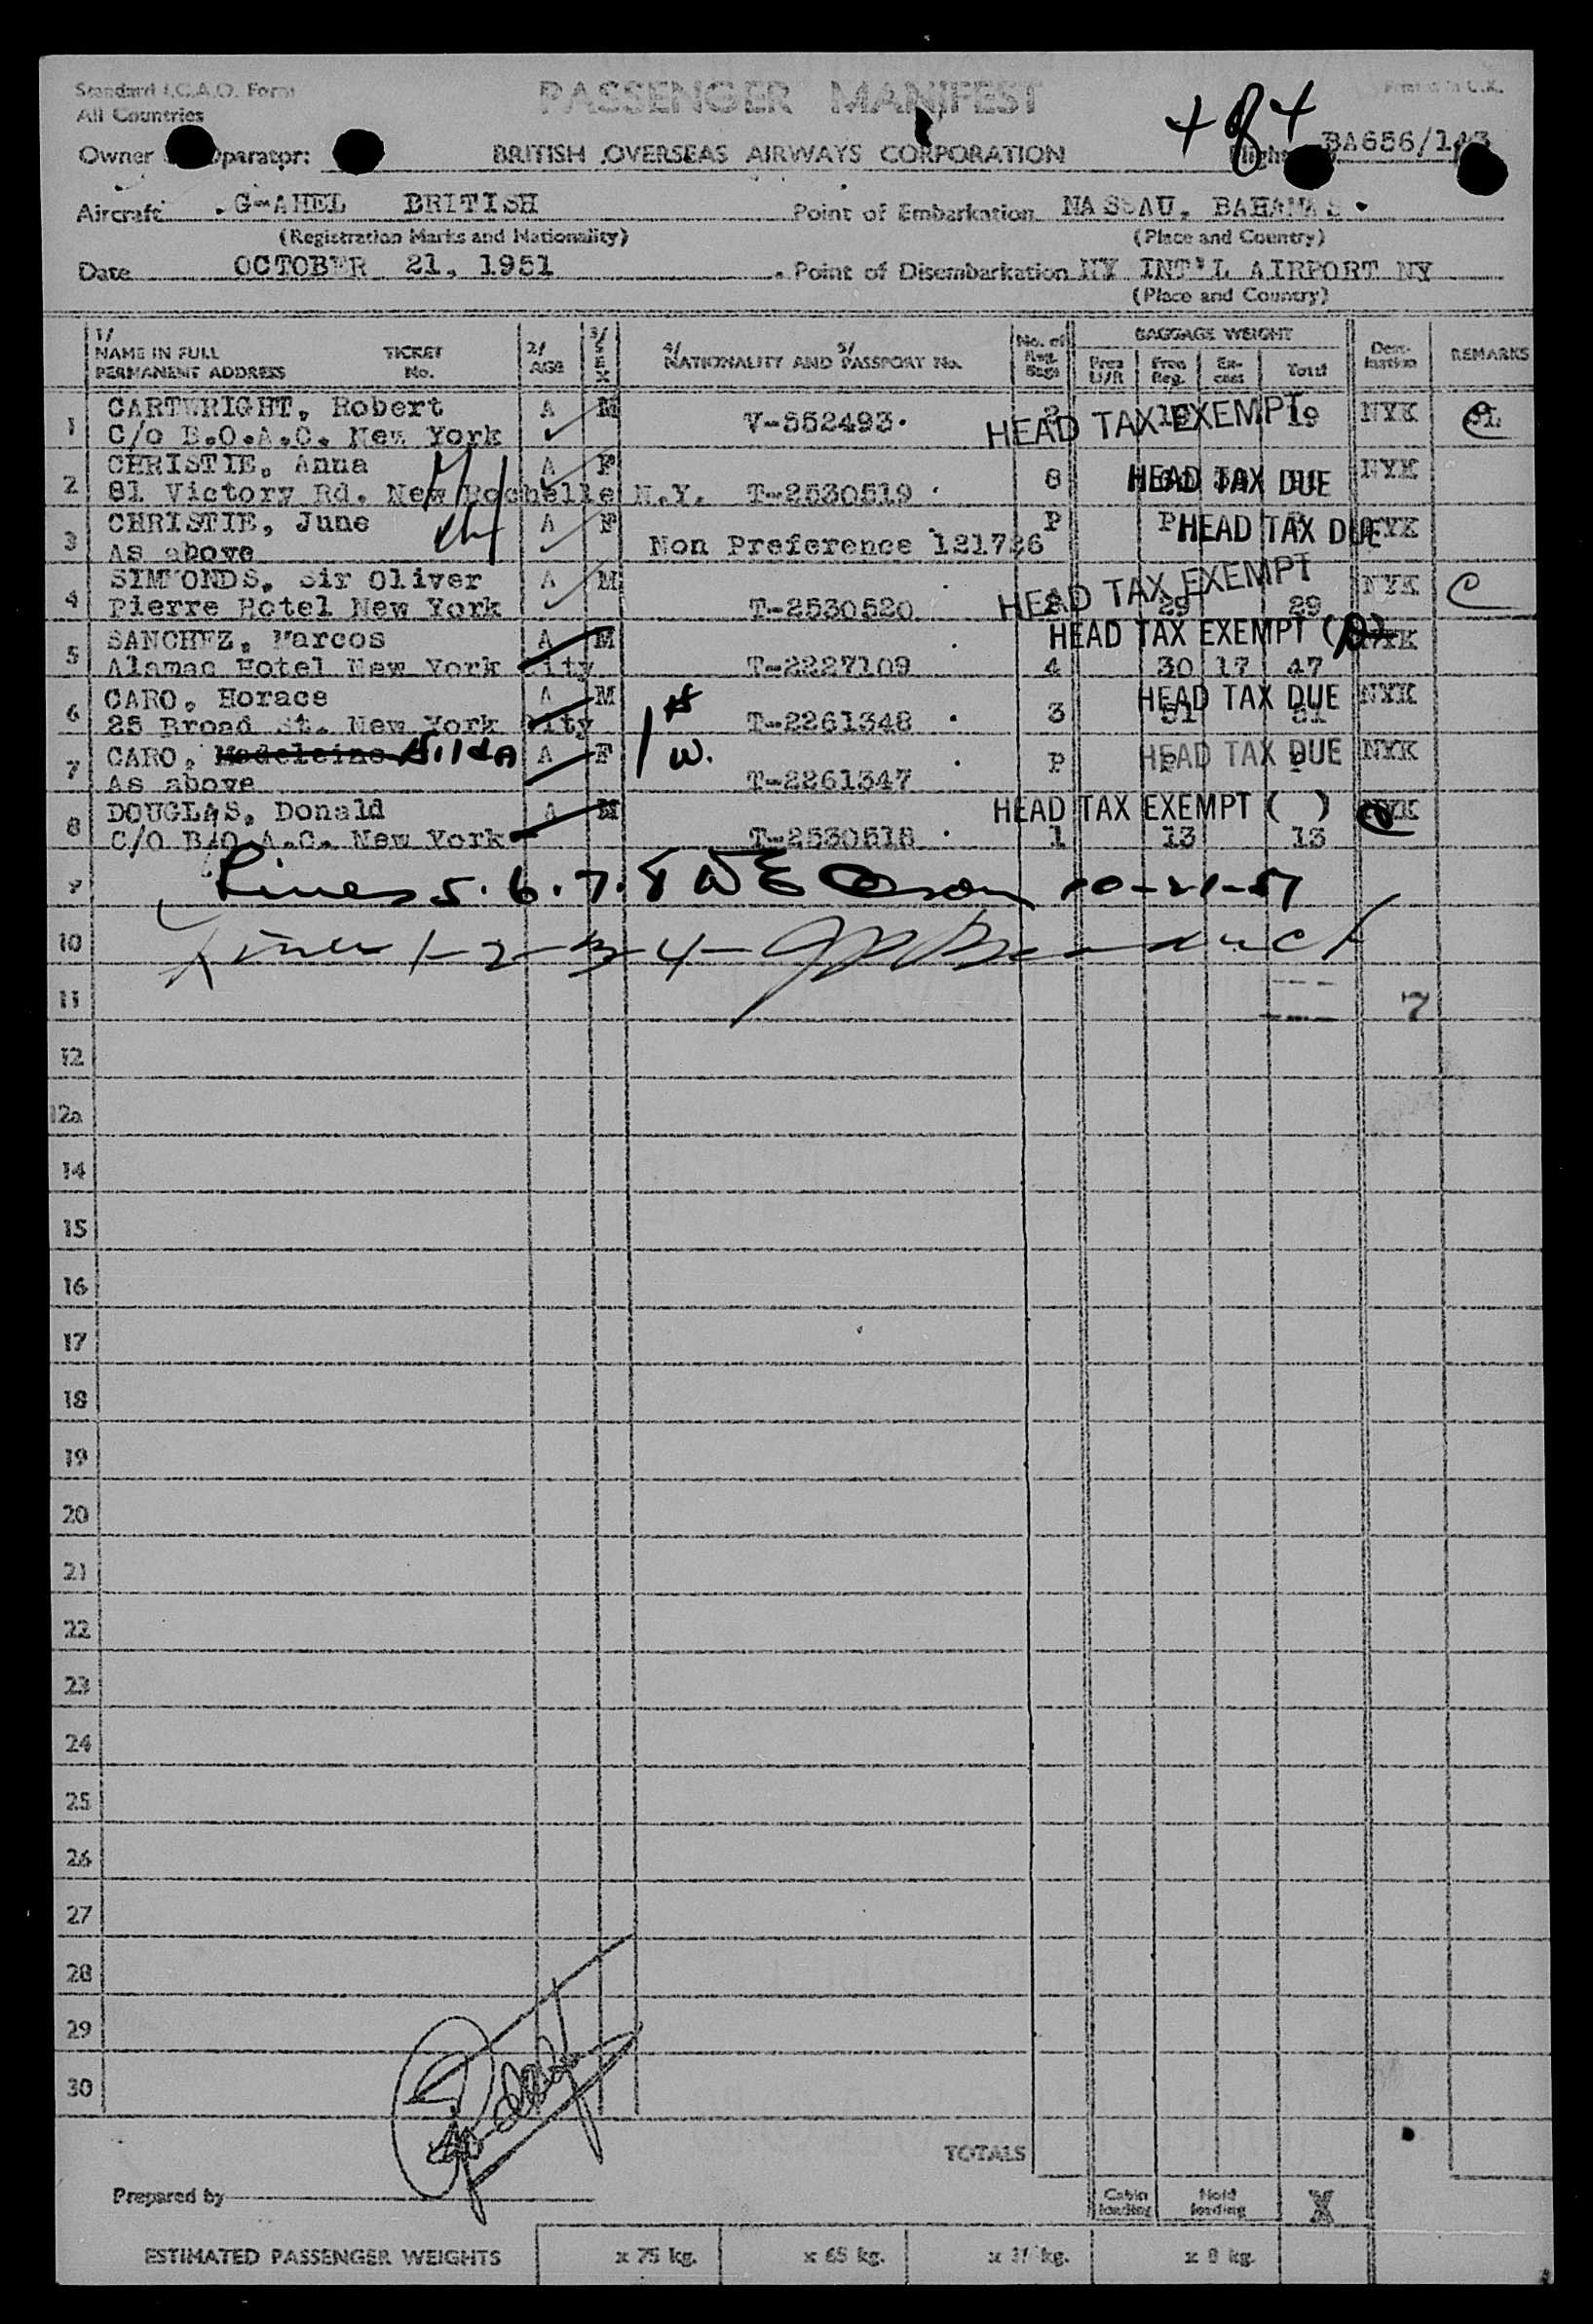 Standard I.C.A.O. Form
All Countries
PASSENGER MANIFEST
4 of 4
Printed in U.K.
Owner Operator:
BRITISH OVERSEAS AIRWAYS CORPORATION
Flight BA656/143
Aircraft G-AHEL BRITISH
Point of Embarkation NASSAU, BAHAMAS.
(Registration Marks and Nationality)
(Place and Country)
Date OCTOBER 21, 1951
Point of Disembarkation NY INT'L AIRPORT NY
(Place and Country)
1/ NAME IN FULL PERMANENT ADDRESS TICKET No. 2/ AGE 3/ SEX 4/ 5/ NATIONALITY AND PASSPORT No. No. of Reg. Bags BAGGAGE WEIGHT Free U/R Free Reg. Ex-cess Total Desti-nation REMARKS
1 CARTWRIGHT, Robert A M V-552493. HEAD TAX EXEMPT 19 NYK
C/o B.O.A.C. New York
2 CHRISTIE, Anna A F 8 HEAD TAX DUE NYK
81 Victory Rd. New Rochelle N.Y. T-2530519
3 CHRISTIE, June A F P P HEAD TAX DUE NYK
As above Non Preference 121726
4 SIMMONDS, Sir Oliver A M HEAD TAX EXEMPT NYK C
Pierre Hotel New York T-2530520 29 29
5 SANCHEZ, Marcos A M HEAD TAX EXEMPT ( ) NYK
Alamac Hotel New York City T-2227109 4 30 17 47
6 CARO, Horace A M H HEAD TAX DUE NYK
25 Broad St. New York City T-2261348 3 51 51
7 CARO, Madeleine Hilda A F W. P HEAD TAX DUE NYK
As above T-2261347
8 DOUGLAS, Donald A M HEAD TAX EXEMPT ( ) NYK
C/O B.O.A.C. New York T-2530518 1 13 13
9 Lines 5. 6. 7. 8 10-21-51
10 Lines 1-2-3-4-
11 7
12
12a
14
15
16
17
18
19
20
21
22
23
24
25
26
27
28
29
30
TOTALS
Prepared by
Cabin loading Hold loading X
ESTIMATED PASSENGER WEIGHTS x 75 kg. x 65 kg. x kg. x 8 kg.